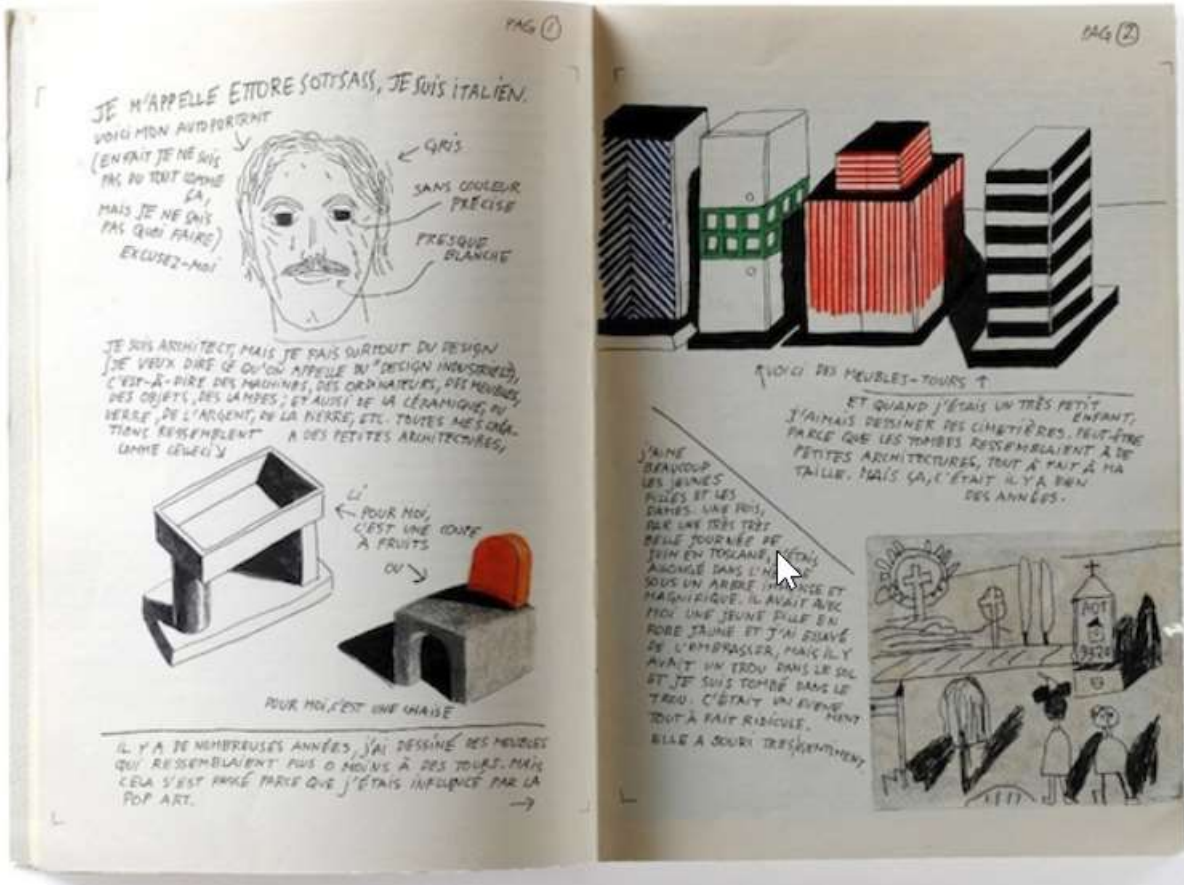 PAG 1
JE M'APPELLE ETTORE SOTTSASS, JE SUIS ITALIEN.
VOICI MON AUTOPORTRAIT
(EN FAIT JE NE SUIS
PAS DU TOUT COMME
ÇA,
MAIS JE NE SAIS
PAS QUOI FAIRE)
EXCUSEZ-MOI
GRIS
SANS COULEUR
PRÉCISE
PRESQUE
BLANCHE
JE SUIS ARCHITECT, MAIS JE FAIS SURTOUT DU DESIGN
(JE VEUX DIRE CE QU'ON APPELLE DU "DESIGN INDUSTRIEL"),
C'EST-À-DIRE DES MACHINES, DES ORDINATEURS, DES MEUBLES,
DES OBJETS, DES LAMPES; ET AUSSI DE LA CÉRAMIQUE, DU
VERRE, DE L'ARGENT, DE LA PIERRE, ETC. TOUTES MES CRÉA-
TIONS RESSEMBLENT A DES PETITES ARCHITECTURES,
COMME CELLECI
POUR MOI,
C'EST UNE COUPE
À FRUITS
OU
POUR MOI, C'EST UNE CHAISE
IL Y A DE NOMBREUSES ANNÉES, J'AI DESSINÉ DES MEUBLES
QUI RESSEMBLAIENT PLUS O MOINS À DES TOURS. MAIS
CELA S'EST PASSÉ PARCE QUE J'ÉTAIS INFLUENCÉ PAR LA
POP ART.
PAG 2
VOICI DES MEUBLES-TOURS
ET QUAND J'ÉTAIS UN TRÈS PETIT
ENFANT,
J'AIMAIS DESSINER DES CIMETIÈRES. PEUT-ÊTRE
PARCE QUE LES TOMBES RESSEMBLAIENT À DE
PETITES ARCHITECTURES, TOUT À FAIT À MA
TAILLE. MAIS ÇA, C'ÉTAIT IL Y A BIEN
DES ANNÉES.
J'AIME
BEAUCOUP
LES JEUNES
FILLES ET LES
DAMES. UNE FOIS,
PAR UNE TRÈS TRÈS
BELLE JOURNÉE DE
JUIN EN TOSCANE, J'ÉTAIS
ALLONGÉ DANS
SOUS UN ARBRE IMMENSE ET
MAGNIFIQUE. IL AVAIT AVEC
MOI UNE JEUNE FILLE EN
ROBE JAUNE ET J'AI ESSAYÉ
DE L'EMBRASSER, MAIS IL Y
AVAIT UN TROU DANS LE SOL
ET JE SUIS TOMBÉ DANS LE
TROU. C'ÉTAIT UN ÉVENEMENT
TOUT À FAIT RIDICULE.
ELLE A SOURI TRES GENTIMENT.